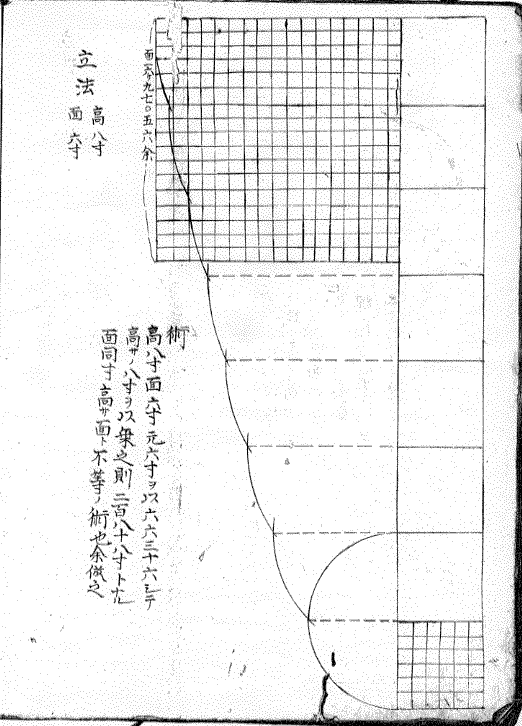 面一六九七〇五六余
立法
高八寸
面六寸
術
高八寸面六寸元六寸ヲ以六六三十六シテ
高サノ八寸ヲ以乗之則二百八十八寸トナル
面同寸高サ面ト不等ノ術也余倣之